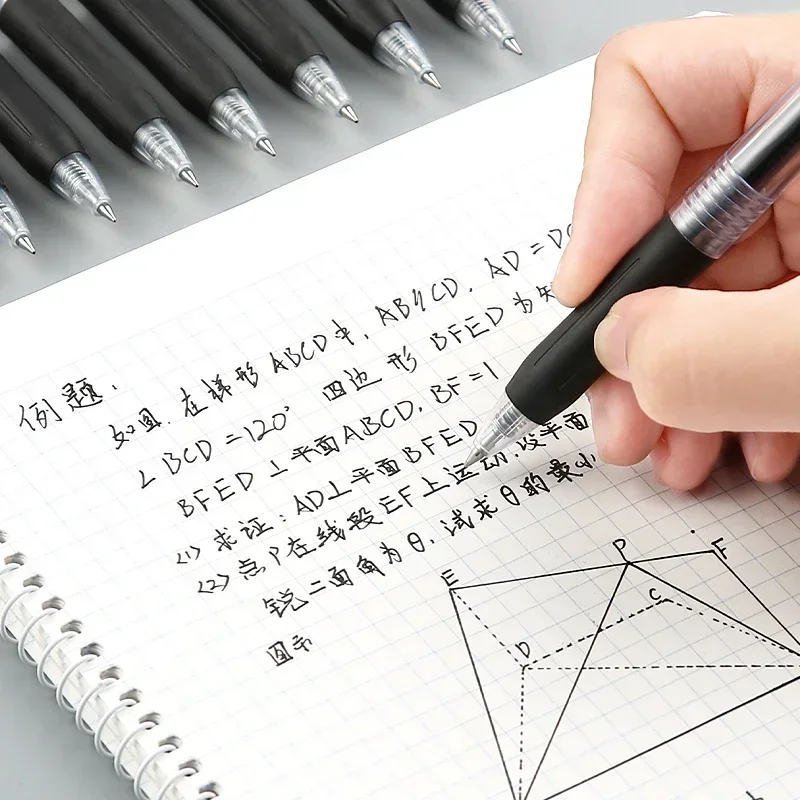 例题.
如图.在梯形ABCD中, AB∥CD. AD=DC
∠BCD=120° 四边形 BFED为矩
BFED⊥平面ABCD. BF=1
(1)求证:AD⊥平面BFED
(2)点P在线段EF上运动.设平面
锐二面角为θ.试求θ的最小
图示
E
P
F
C
D